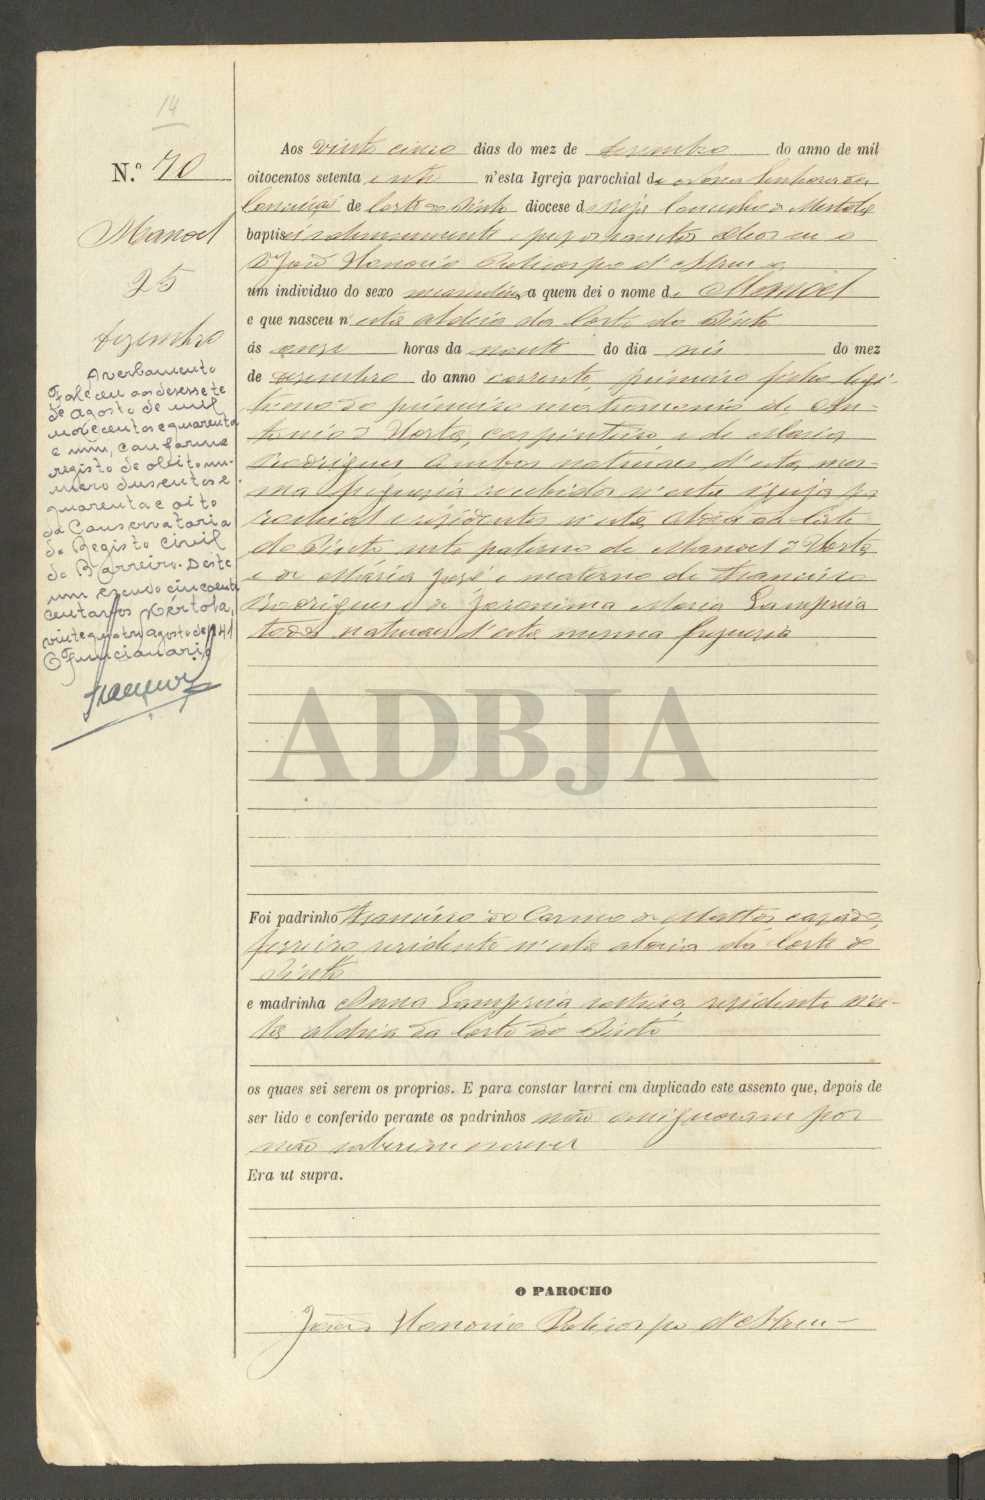 14
N.º 70
Manoel
25
dezembro
Averbamento
Faleceu aos desessete
de agosto de mil
novecentos e quarenta
e um, conforme
registo de obito nu-
mero dusentos e
quarenta e oito
da Conservatoria
do Registo Civil
do Barreiro. Deste
um escudo cincoenta
centavos Mértola,
vinte quatro agosto de 941
O Funcionario,
Aos vinte cinco dias do mez de dezembro do anno de mil
oitocentos setenta e sete n'esta Igreja parochial de Nossa Senhora da
Conceição de Corte do Pinto diocese de Beja Concelho de Mertola
baptisei solemnemente e puz os santos oleos eu o
P. João Honorio Policarpo d'Abreu
um individuo do sexo masculino a quem dei o nome de Manoel
e que nasceu n'esta aldeia da Corte do Pinto
ás onze horas da noute do dia seis do mez
de dezembro do anno corrente, primeiro filho legi-
timo do primeiro matrimonio de An-
tonio d'Horta, carpinteiro, e de Maria
Rodrigues Ambos naturaes d'esta mes-
ma freguesia recebidos n'esta igreja pa
rochial e residentes n'esta aldeia da Corte
do Pinto neto paterno de Manoel d'Horta
e de Maria José e materno de Francisco
Rodrigues e de Jeronima Maria Lampreia
todos naturaes d'esta mesma freguesia
ADBJA
Foi padrinho Francisco do Carmo de Mattos casado
ferreiro residente n'esta aldeia da Corte do
Pinto
e madrinha Anna Lampreia solteira residente n'es-
ta aldeia da Corte do Pinto
os quaes sei serem os proprios. E para constar lavrei em duplicado este assento que, depois de
ser lido e conferido perante os padrinhos não assignaram por
não saberem escrever
Era ut supra.
O PAROCHO
João Honorio Policarpo d'Abreu